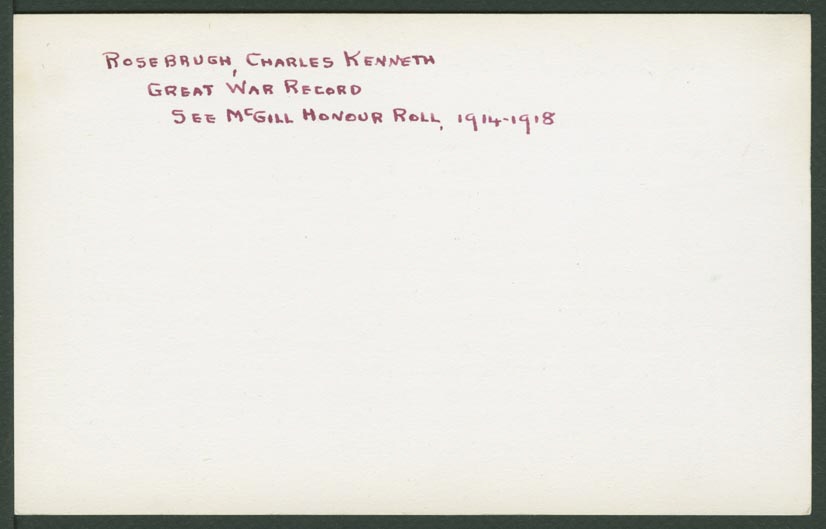 ROSEBRUGH, CHARLES KENNETH
GREAT WAR RECORD
SEE McGILL HONOUR ROLL, 1914-1918